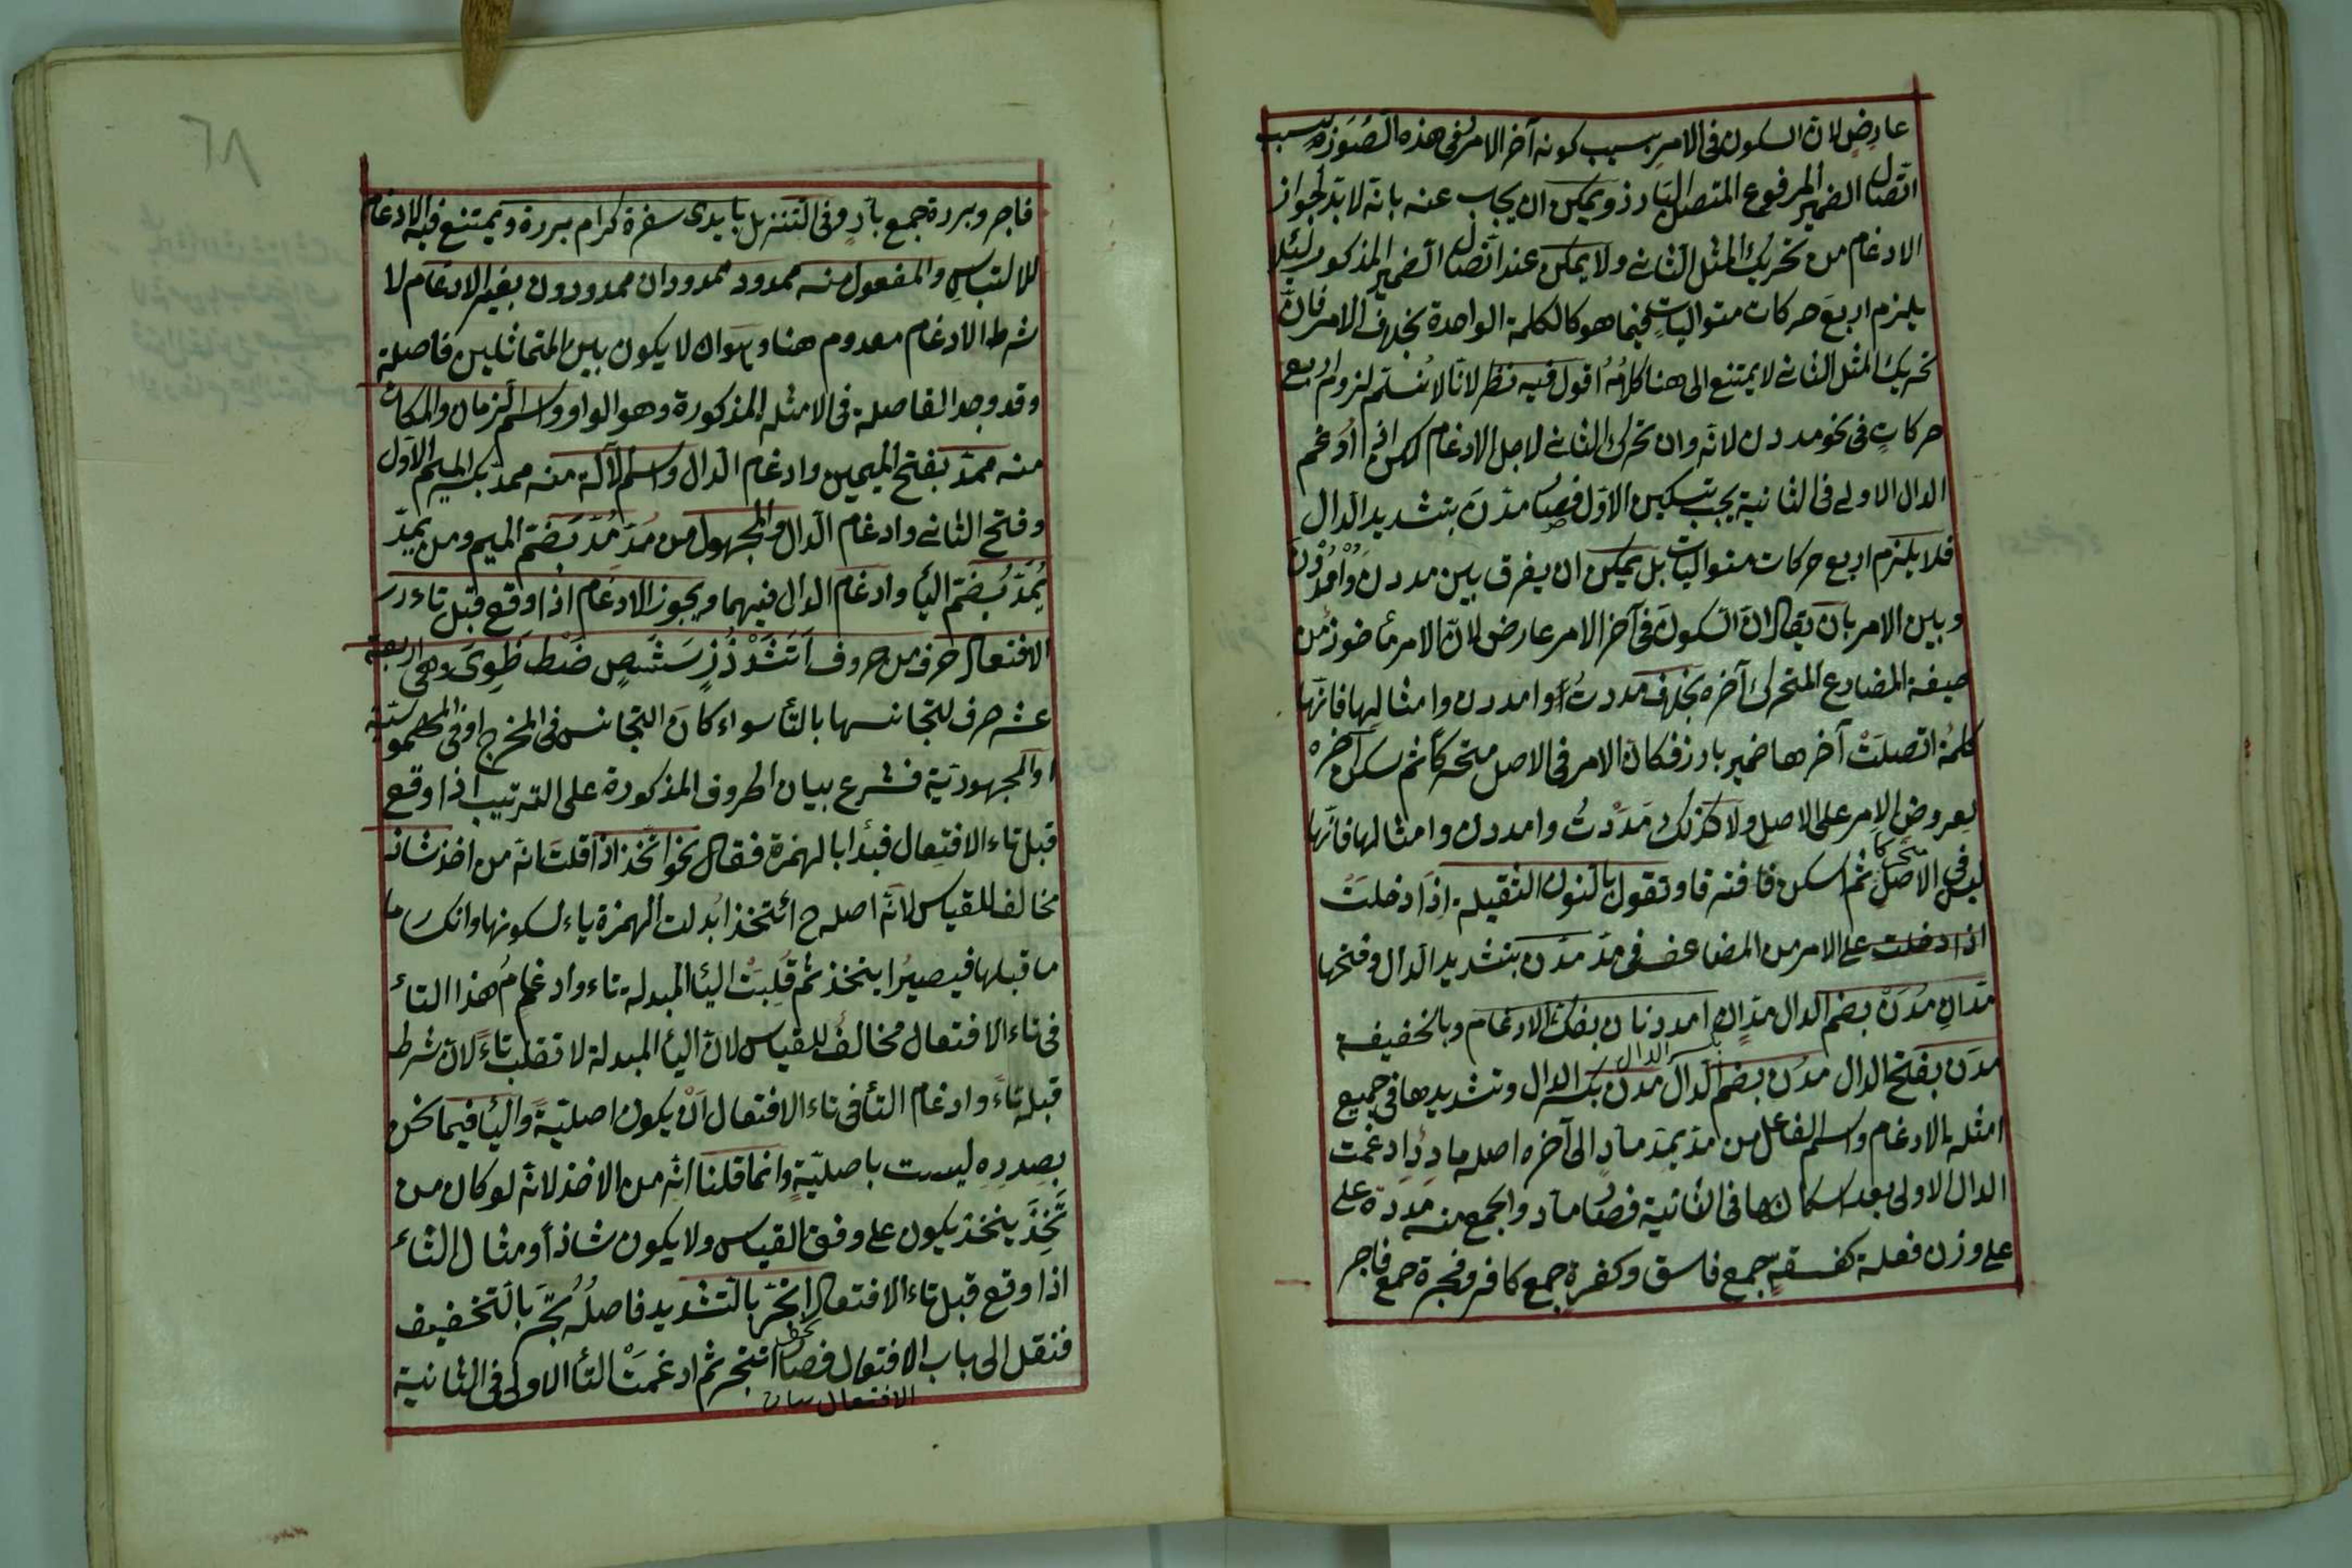 عارض لان السكون فى الامر بسبب كونه آخر الامر وفى هذه الصورة بسبب
اتصال الضمير المرفوع المتصل البارز ويمكن ان يجاب عنه بانه لا بد لجواز
الادغام من تحريك المثل الثانى ولا يمكن عند اتصال الضمير المذكور لئلا
يلزم اربع حركات متواليات فيما هو كالكلمة الواحدة بخلاف الامر فان
تحريك المثل الثانى لا يمتنع الى هنا كلامه اقول فيه نظر لانا لا نسلم لزوم اربع
حركات فى نحو مددن لانه وان تحرك الثانى لاجل الادغام لكن اذا ادغم
الدال الاولى فى الثانية يجب تسكين الاول فصار مدّن بتشديد الدال
فلا يلزم اربع حركات متواليات بل يمكن ان يفرق بين مددن وامددن
وبين الامر بان يقال ان السكون فى آخر الامر عارض لان الامر مأخوذ من
صيغة المضارع المتحرك آخره بخلاف مددت وامددن وامثالها فانها
كلمة اتصلت آخرها ضمير بارز فكان الامر فى الاصل متحركا ثم سكن آخره
بعروض الامر على الاصل ولا كذلك مددت وامددن وامثالها فانها
ليس فى الاصل متحركا ثم اسكن فافترقا وتقول بالنون الثقيلة اذا دخلت
اذا دخلت على الامر من المضاعف فى مد مدن بتشديد الدال وفتحها
مدان مدن بضم الدال مدان امددنان بفك الادغام وبالخفيفة
مدن بفتح الدال مدن بضم الدال مدن بكسر الدال وتشديدها فى جميع
امثله بالادغام واسم الفاعل من مد يمد ماد الى آخره اصله مادد ادغمت
الدال الاولى بعد اسكانها فى الثانية فصار ماد والجمع منه مددة على
على وزن فعلة كفسقة جمع فاسق وكفرة جمع كافر وفجرة جمع فاجر
٦٨
فاجر وبررة جمع بار وفى التنزيل بايدى سفرة كرام بررة ويمتنع فيه الادغام
للالتباس والمفعول منه ممدود ممدودان ممدودون بغير الادغام لا
شرط الادغام معدوم هنا وهو ان لا يكون بين المتماثلين فاصلة
وقد وجد الفاصلة فى الامثله المذكورة وهو الواو واسم الزمان والمكان
منه ممد بفتح الميمين وادغام الدال واسم الآلة منه ممد بكسر الميم الاول
وفتح الثانى وادغام الدال والمجهول من مد مد بضم الميم ومن يمد
يمد بضم اليأ وادغام الدال فيهما ويجوز الادغام اذا وقع قبل تاء
الافتعال حرف من حروف اتثدذز سشص ضطظوى وهى اربعة
عشر حرف لتجانسها بالتأ سواء كان التجانس فى المخرج او فى المهموسية
او المجهورية فشرع ببيان الحروف المذكورة على الترتيب اذا وقع
قبل تاء الافتعال فبدأ بالهمزة فقال نحو اتخذ اذا قلت انه من اخذ شاذ
مخالف للقياس لانه اصله ح ائتخذ ابدلت الهمزة ياء لسكونها وانكسار ما
ما قبلها فيصير ايتخذ ثم قلبت اليأ المبدلة تاء وادغام هذا التاء
فى تاء الافتعال مخالف للقياس لان اليأ المبدلة لا تقلب تاء لان شرط
قبله تاء وادغام التأ فى تاء الافتعال ان يكون اصلية واليأ فيما نحن
بصدده ليست باصلية وانما قلنا انه من الاخذ لانه لو كان من
تخذ يتخذ يكون على وفق القياس ولا يكون شاذا ومثال التاء
اذا وقع قبل تاء الافتعال اتجر بالتشديد فاصله تجر بالتخفيف
فنقل الى باب الافتعال فصار اتتجر ثم ادغمت التأ الاولى فى الثانية